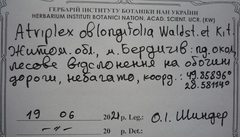 ГЕРБАРІЙ ІНСТИТУТУ БОТАНІКИ НАН УКРАЇНИ
HERBARIUM INSTITUTI BOTANICI NATION. ACAD. SCIENT. UCR. (KW)
Atriplex oblongifolia Waldst. et Kit.
Житом. обл., м. Бердичів: пд. окол.,
лесове відслонення на обочині
дороги, небагато, коорд.: 49.85896°
28.581140°
19 06 2020 р. Leg.: О.І. Шиндер
20 р. Det.: